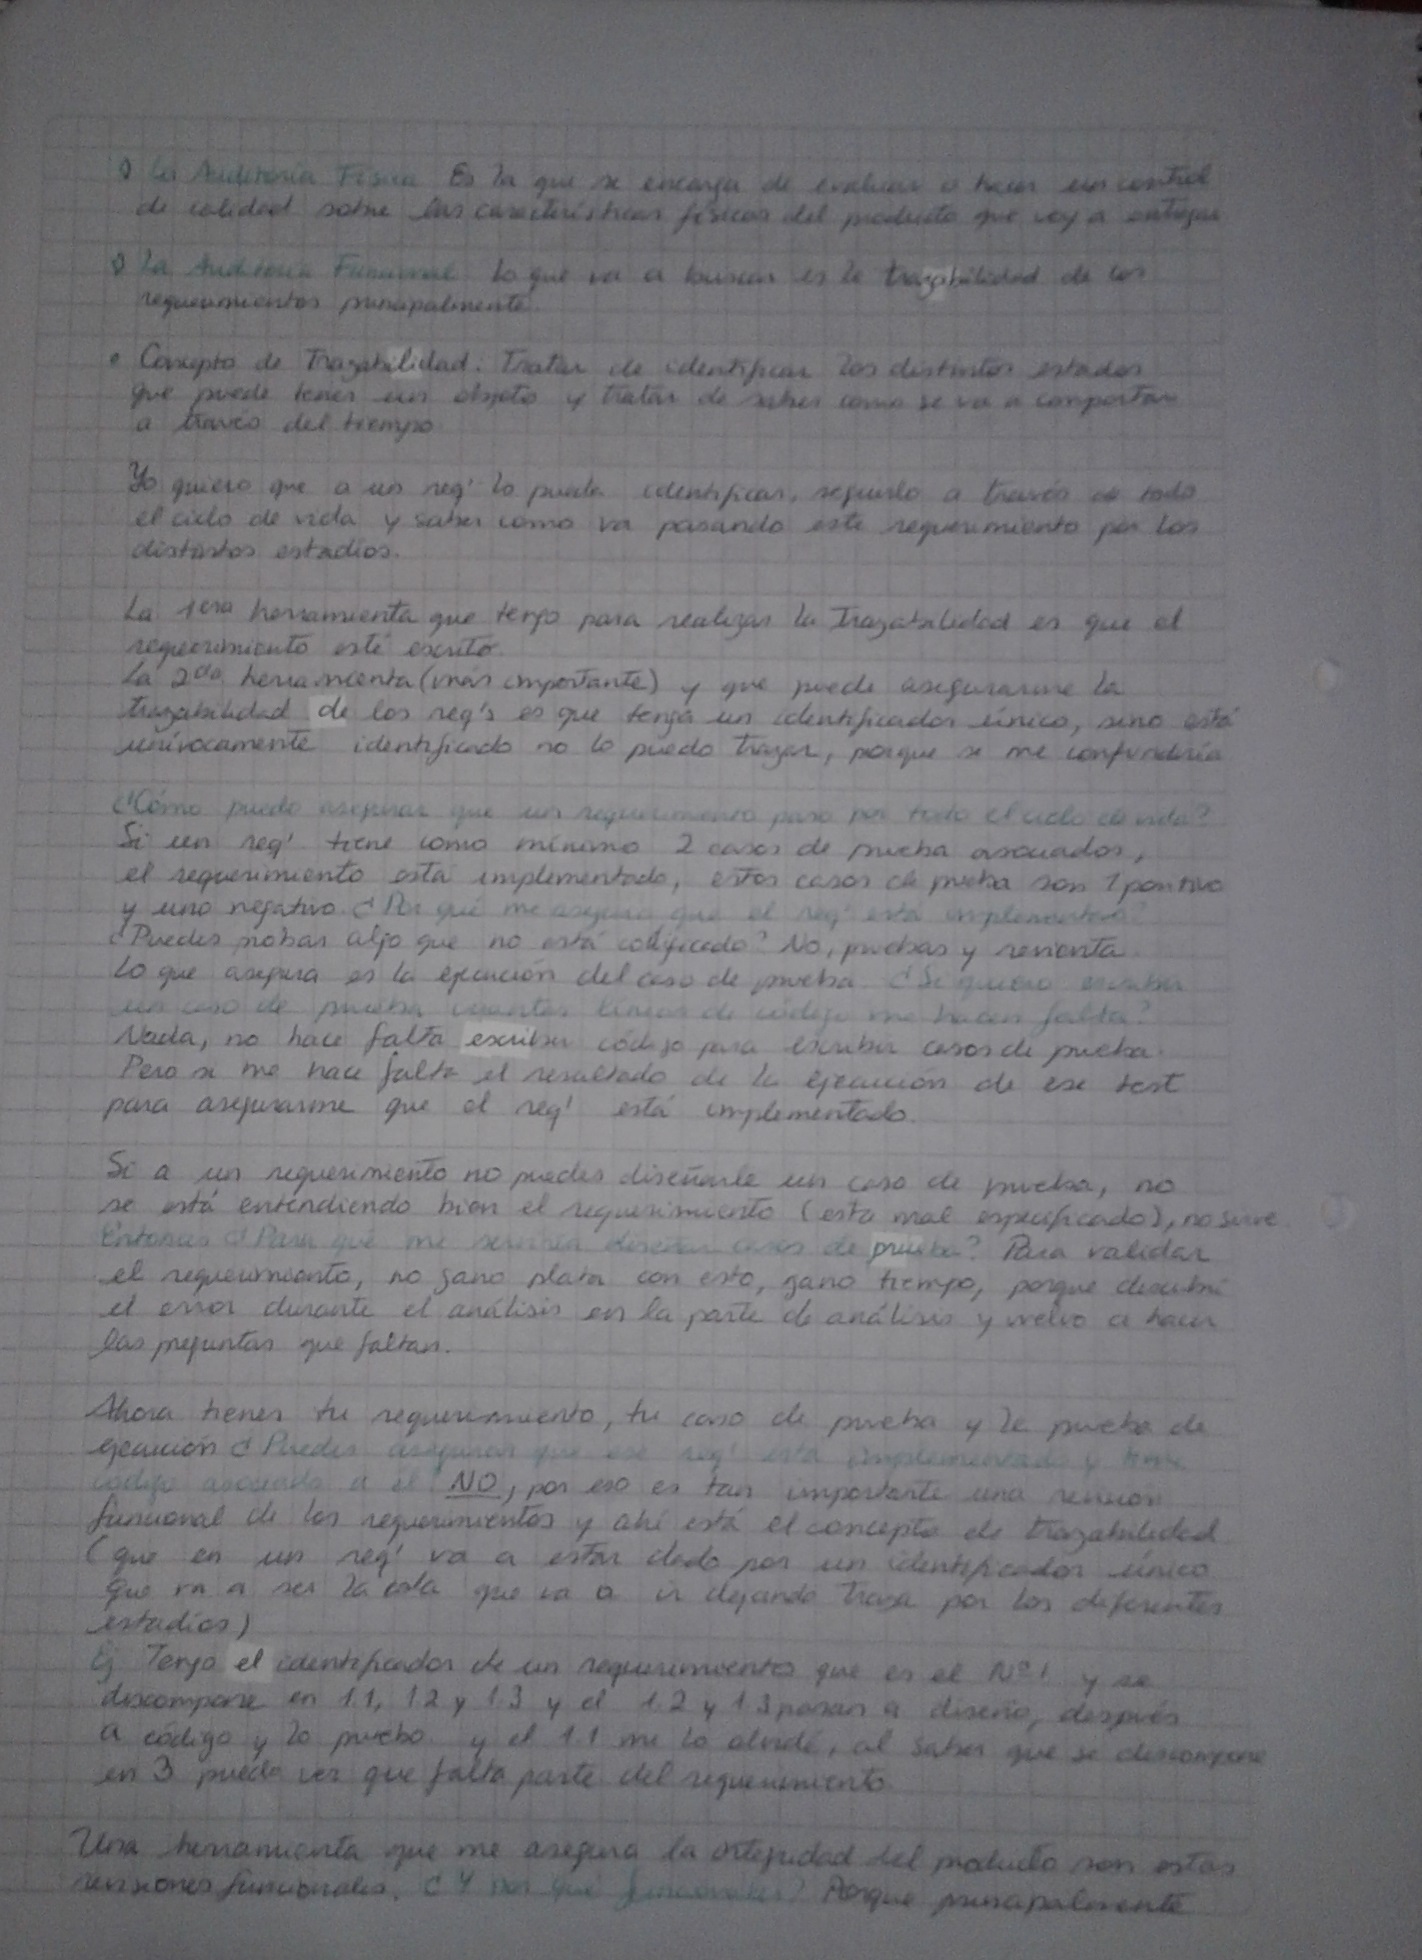 La Auditoría Física Es la que se encarga de evaluar o hacer un control
de calidad sobre las características físicas del producto que voy a entregar
La Auditoría Funcional lo que va a buscar es la trazabilidad de los
requerimientos principalmente.
• Concepto de Trazabilidad: Tratar de identificar los distintos estados
que puede tener un objeto y tratar de saber como se va a comportar
a través del tiempo
Yo quiero que a un req' lo pueda identificar, seguirlo a través de todo
el ciclo de vida y saber como va pasando este requerimiento por los
distintos estadíos.
La 1era herramienta que tengo para realizar la Trazabilidad es que el
requerimiento esté escrito.
La 2da herramienta (más importante) y que puede asegurarme la
trazabilidad de los req's es que tenga un identificador único, sino está
unívocamente identificado no lo puedo trazar, porque se me confundiría
¿Cómo puedo asegurar que un requerimiento paso por todo el ciclo de vida?
Si un req' tiene como mínimo 2 casos de prueba asociados,
el requerimiento está implementado, estos casos de prueba son 1 positivo
y uno negativo. ¿Por qué me asegura que el req' está implementado?
¿Puedes probar algo que no está codificado? No, pruebas y revienta.
Lo que asegura es la ejecución del caso de prueba. ¿Si quiero escribir
un caso de prueba cuantas líneas de código me hacen falta?
Nada, no hace falta escribir código para escribir casos de prueba.
Pero si me hace falta el resultado de la ejecución de ese test
para asegurarme que el req' está implementado.
Si a un requerimiento no puedes diseñarle un caso de prueba, no
se está entendiendo bien el requerimiento (esta mal especificado), no sirve.
Entonces ¿Para qué me serviría diseñar casos de prueba? Para validar
el requerimiento, no gano plata con esto, gano tiempo, porque descubrí
el error durante el análisis en la parte de análisis y vuelvo a hacer
las preguntas que faltan.
Ahora tienes tu requerimiento, tu caso de prueba y la prueba de
ejecución ¿Puedes asegurar que ese req' está implementado y tiene
código asociado a él NO, por eso es tan importante una revisión
funcional de los requerimientos y ahí está el concepto de trazabilidad
(que en un req' va a estar dado por un identificador único
que va a ser la que va a ir dejando traza por los diferentes
estadíos)
Ej Tengo el identificador de un requerimiento que es el Nº1 y se
descompone en 1.1, 1.2 y 1.3 y el 1.2 y 1.3 pasan a diseño, después
a código y lo pruebo y el 1.1 me lo olvidé, al saber que se descompone
en 3 puedo ver que falta parte del requerimiento
Una herramienta que me asegura la integridad del producto son estas
revisiones funcionales. ¿Y por qué funcionales? Porque principalmente